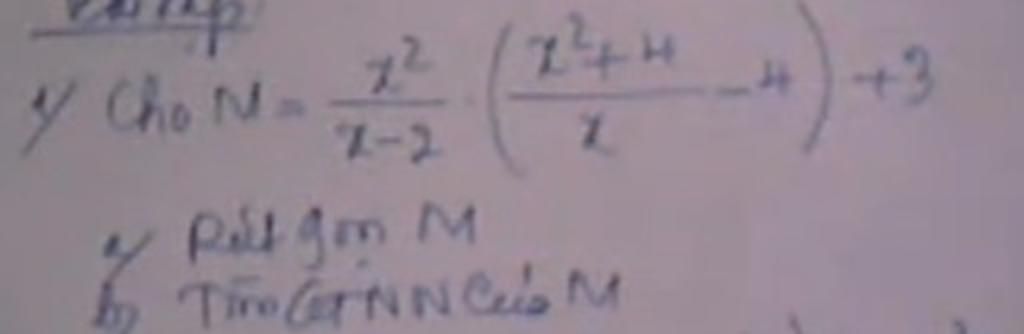 Bài tập
1/ Cho M = \frac{x^2}{x-2} . \left( \frac{x^2+4}{x} - 4 \right) + 3
a/ Rút gọn M
b) Tìm GTNN của M